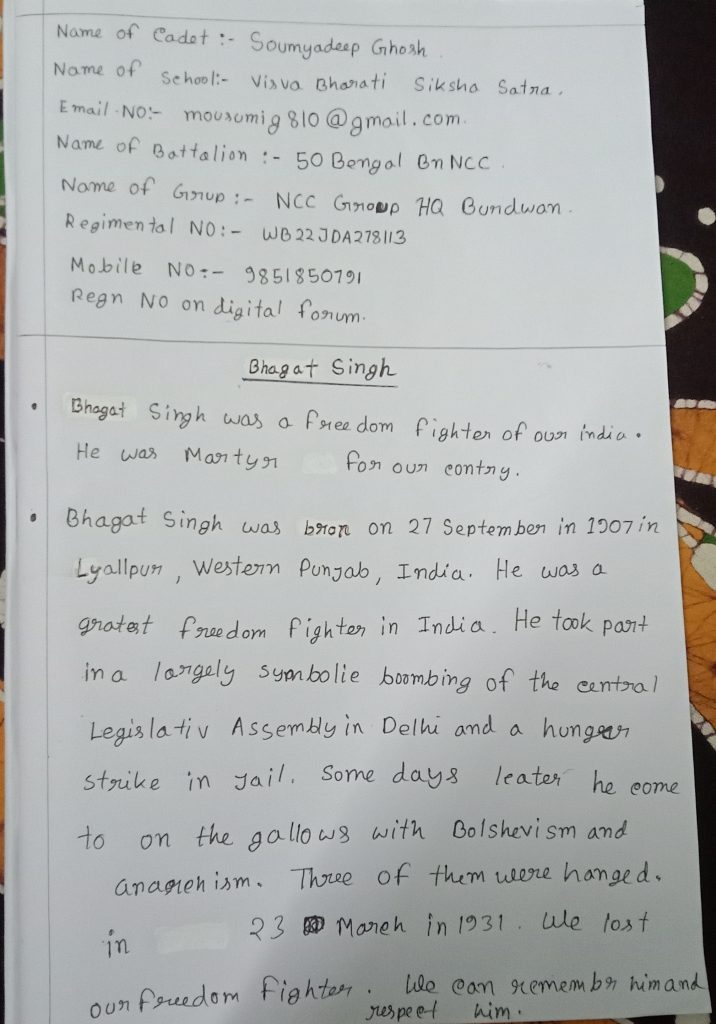 Name of Cadet :- Soumyadeep Ghosh
Name of School:- Visva Bharati Siksha Satra.
Email NO:- mousumig810@gmail.com.
Name of Battalion :- 50 Bengal Bn NCC.
Name of Grrup :- NCC Group HQ Burdwan.
Regimental NO:- WB22JDA278113
Mobile NO:- 9851850791
Regn NO on digital forum.
Bhagat Singh
• Bhagat Singh was a freedom fighter of our india.
He was Martyr for our contry.
• Bhagat Singh was bron on 27 September in 1907 in
Lyallpur, Western Punjab, India. He was a
gratest freedom fighter in India. He took part
in a largely symbolic boombing of the central
Legislativ Assembly in Delhi and a hunger
strike in jail. Some days leater he come
to on the gallows with Bolshevism and
anarchism. Three of them were hanged.
in 23 March in 1931. We lost
our freedom fighter. We can remembr him and
respect him.